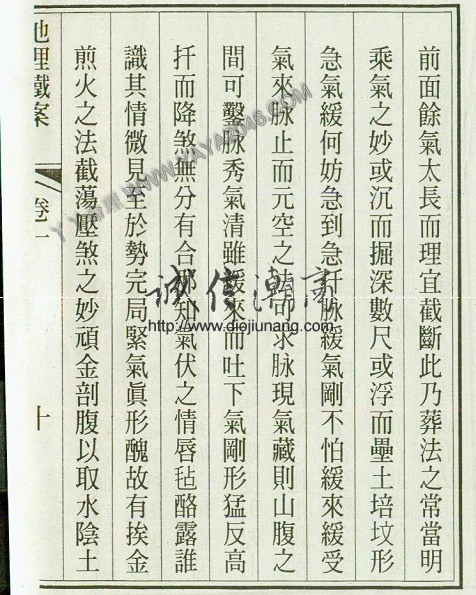 前面餘氣太長而理宜截斷此乃葬法之常當明
乘氣之妙或沉而掘深數尺或浮而壘土培坟形
急氣緩何妨急到急扦脉緩氣剛不怕緩來緩受
氣來脉止而元空之法可求脉現氣藏則山腹之
間可鑿脉秀氣清雖緩來而吐下氣剛形猛反高
扦而降煞無分有合那知氣伏之情唇毡酪露誰
識其情微見至於勢完局緊氣眞形醜故有挨金
煎火之法截蕩壓煞之妙頑金剖腹以取水陰土
地理鐵案
卷一
十
誠信潮高
http://www.diejiunang.com
WWW.YAYA2046.COM